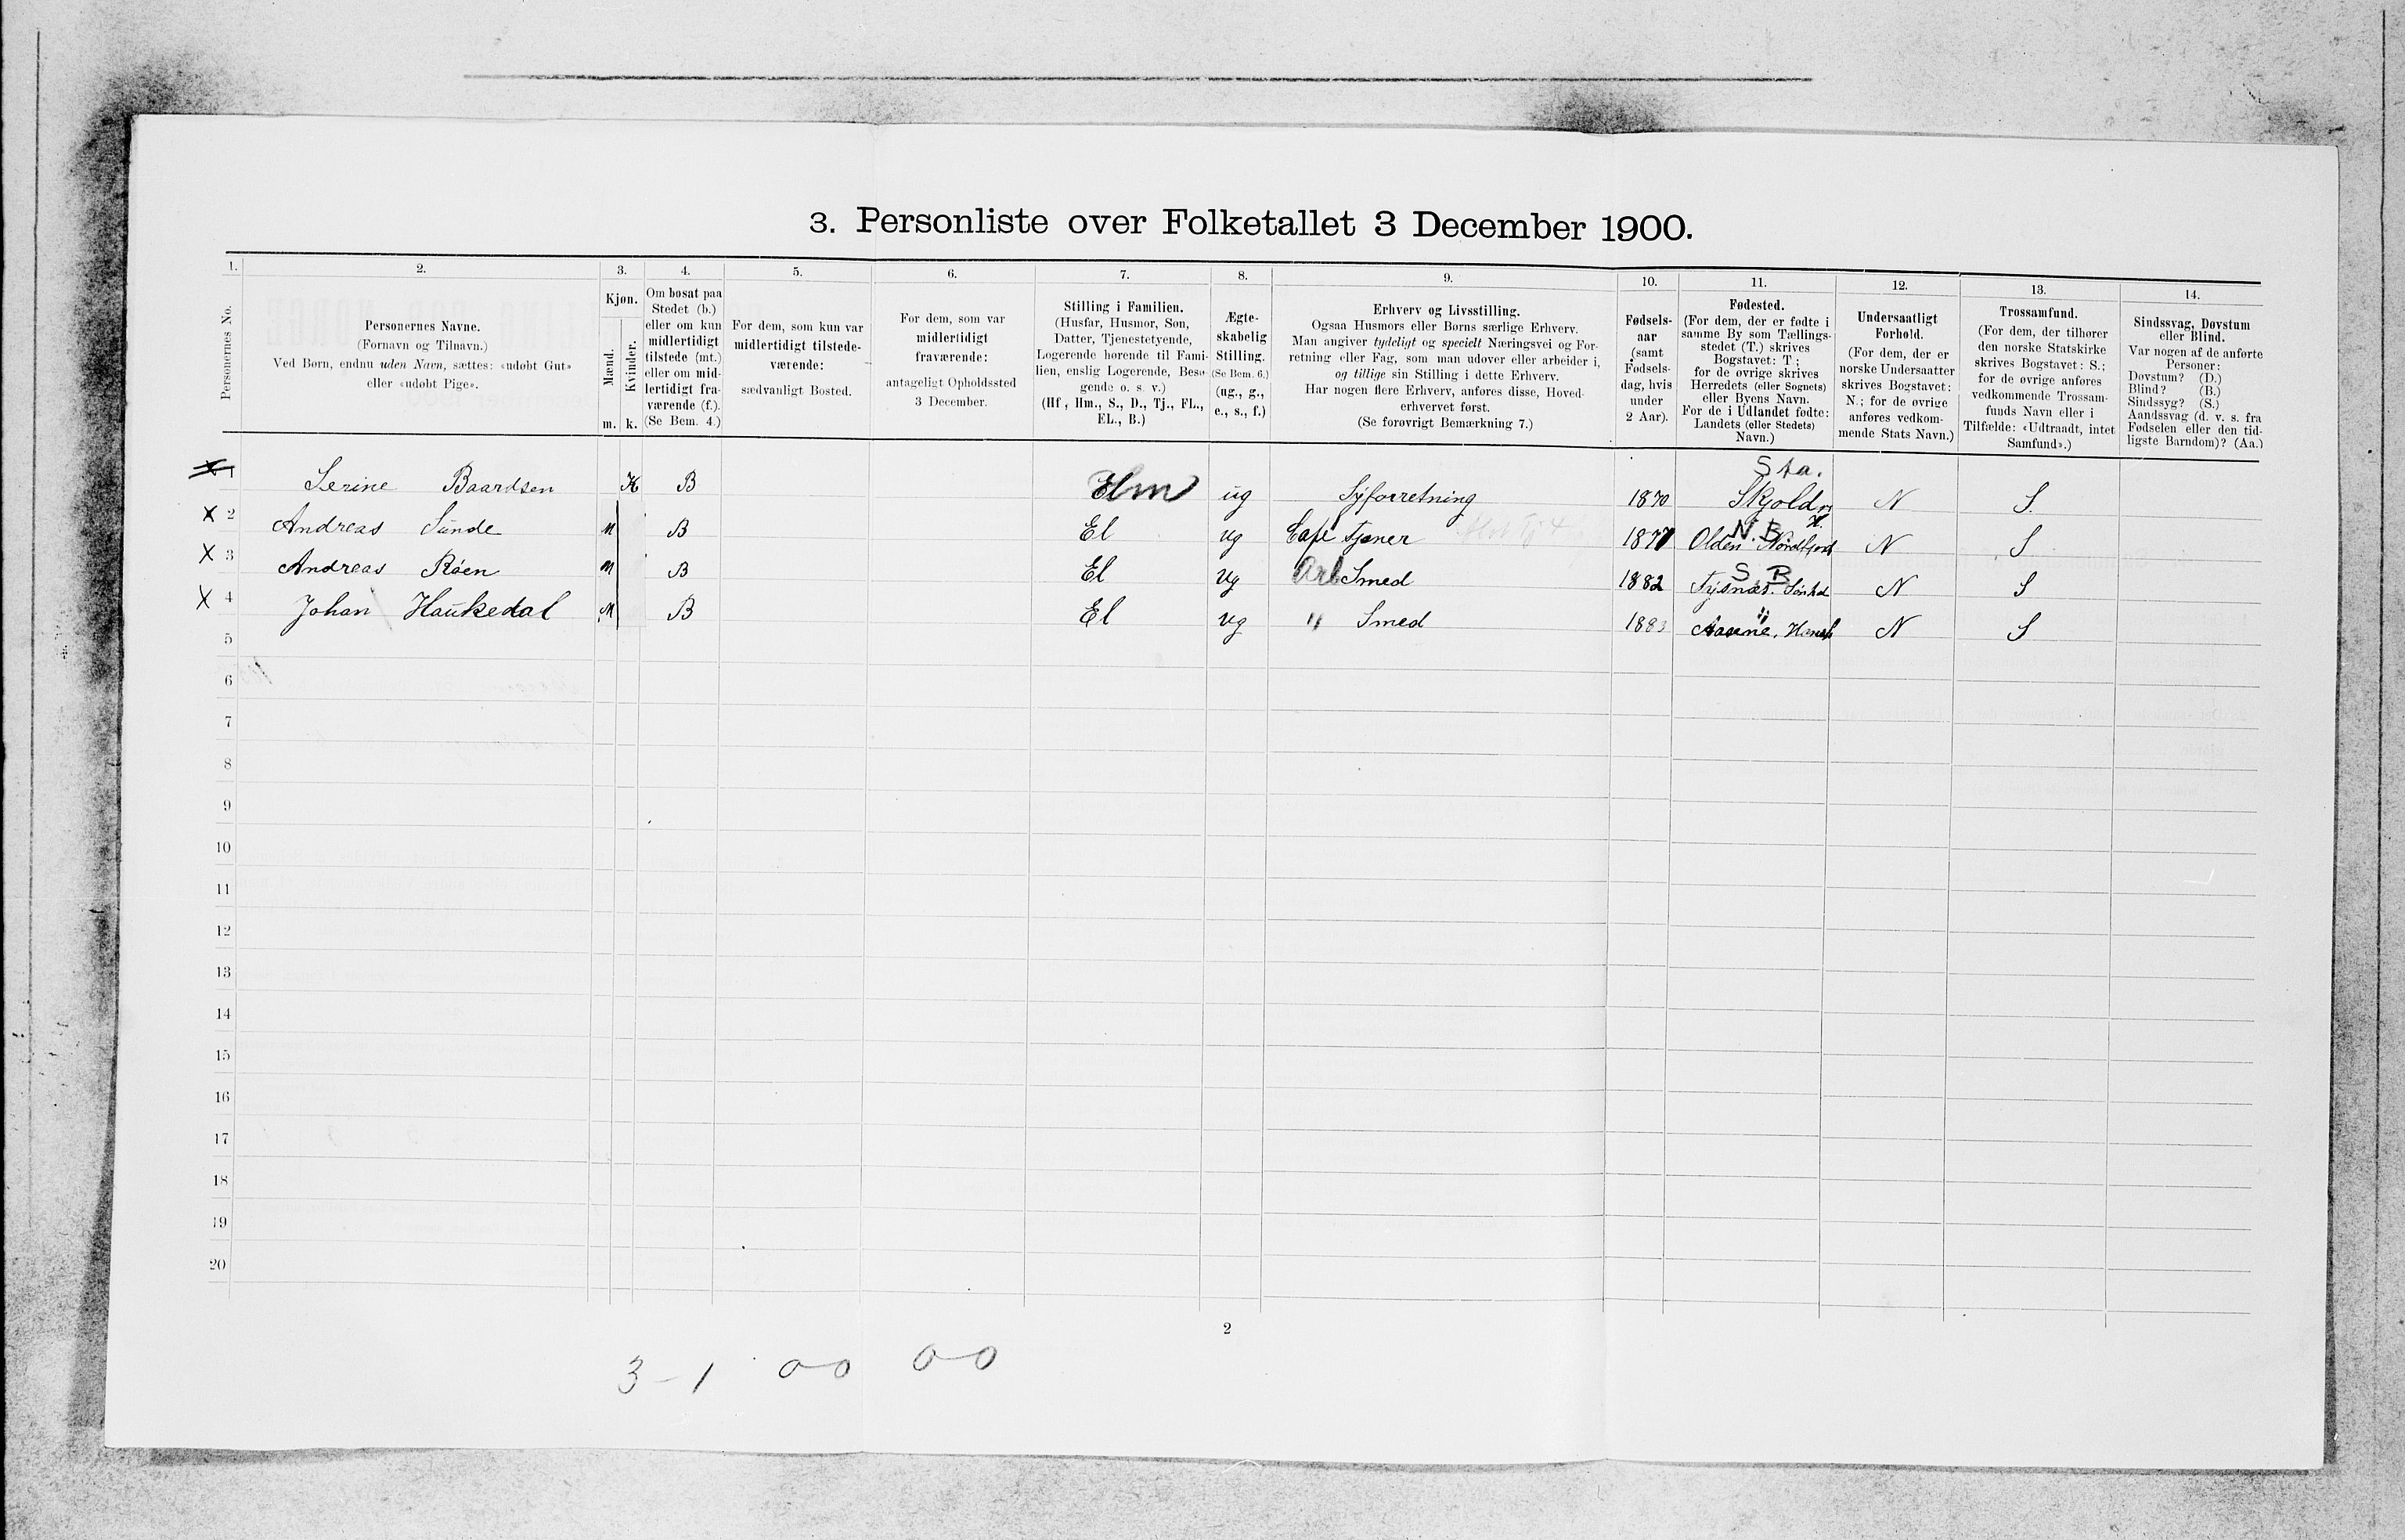 3. Personliste over Folketallet 3 December 1900.
1. 2. 3. 4. 5. 6. 7. 8. 9. 10. 11. 12. 13. 14.
Personernes No.
Personernes Navne.
(Fornavn og Tilnavn.)
Ved Børn, endnu uden Navn, sættes: «udøbt Gut»
eller «udøbt Pige».
Kjøn.
Mænd.
Kvinder.
m. k.
Om bosat paa
Stedet (b.)
eller om kun
midlertidigt
tilstede (mt.)
eller om mid-
lertidigt fra-
værende (f.).
(Se Bem. 4.)
For dem, som kun var
midlertidigt tilstede-
værende:
sædvanligt Bosted.
For dem, som var
midlertidigt
fraværende:
antageligt Opholdssted
3 December.
Stilling i Familien.
(Husfar, Husmor, Søn,
Datter, Tjenestetyende,
Logerende hørende til Fami-
lien, enslig Logerende, Besø-
gende o. s. v.)
(Hf, Hm., S., D., Tj., FL.,
EL., B.)
Ægte-
skabelig
Stilling.
(Se Bem. 6.)
(ug., g.,
e., s., f.)
Erhverv og Livsstilling.
Ogsaa Husmors eller Børns særlige Erhverv.
Man angiver tydeligt og specielt Næringsvei og For-
retning eller Fag, som man udover eller arbeider i,
og tillige sin Stilling i dette Erhverv.
Har nogen flere Erhverv, anføres disse, Hoved-
erhvervet først.
(Se forøvrigt Bemærkning 7.)
Fødsels-
aar
(samt
Fødsels-
dag, hvis
under
2 Aar).
Fødested.
(For dem, der er fødte i
samme By som Tællings-
stedet (T.) skrives
Bogstavet: T;
for de øvrige skrives
Herredets (eller Sognets)
eller Byens Navn.
For de i Udlandet fødte:
Landets (eller Stedets)
Navn.)
Undersaatligt
Forhold.
(For dem, der er
norske Undersaatter
skrives Bogstavet:
N.; for de øvrige
anføres vedkom-
mende Stats Navn.)
Trossamfund.
(For dem, der tilhører
den norske Statskirke
skrives Bogstavet: S.;
for de øvrige anføres
vedkommende Trossam-
funds Navn eller i
Tilfælde: «Udtraadt, intet
Samfund».)
Sindssvag, Døvstum
eller Blind.
Var nogen af de anførte
Personer:
Døvstum? (D.)
Blind? (B.)
Sindssyg? (S.)
Aandssvag (d. v. s. fra
Fødselen eller den tid-
ligste Barndom)? (Aa.)
Sta.
X 1 Serine Baardsen K B Hm ug Syforretning 1870 Skjold N S.
N.B
X 2 Andreas Sunde M B El ug Café tjener 1877 Olden Nordfjord N S
S.B
X 3 Andreas Røen M B El ug Arb Smed 1882 Tysnæs. N S
"
X 4 Johan Haukedal M B El ug " Smed 1883 N S
5
6
7
8
9
10
11
12
13
14
15
16
17
18
19
20
2
3-1 0-0 0-0